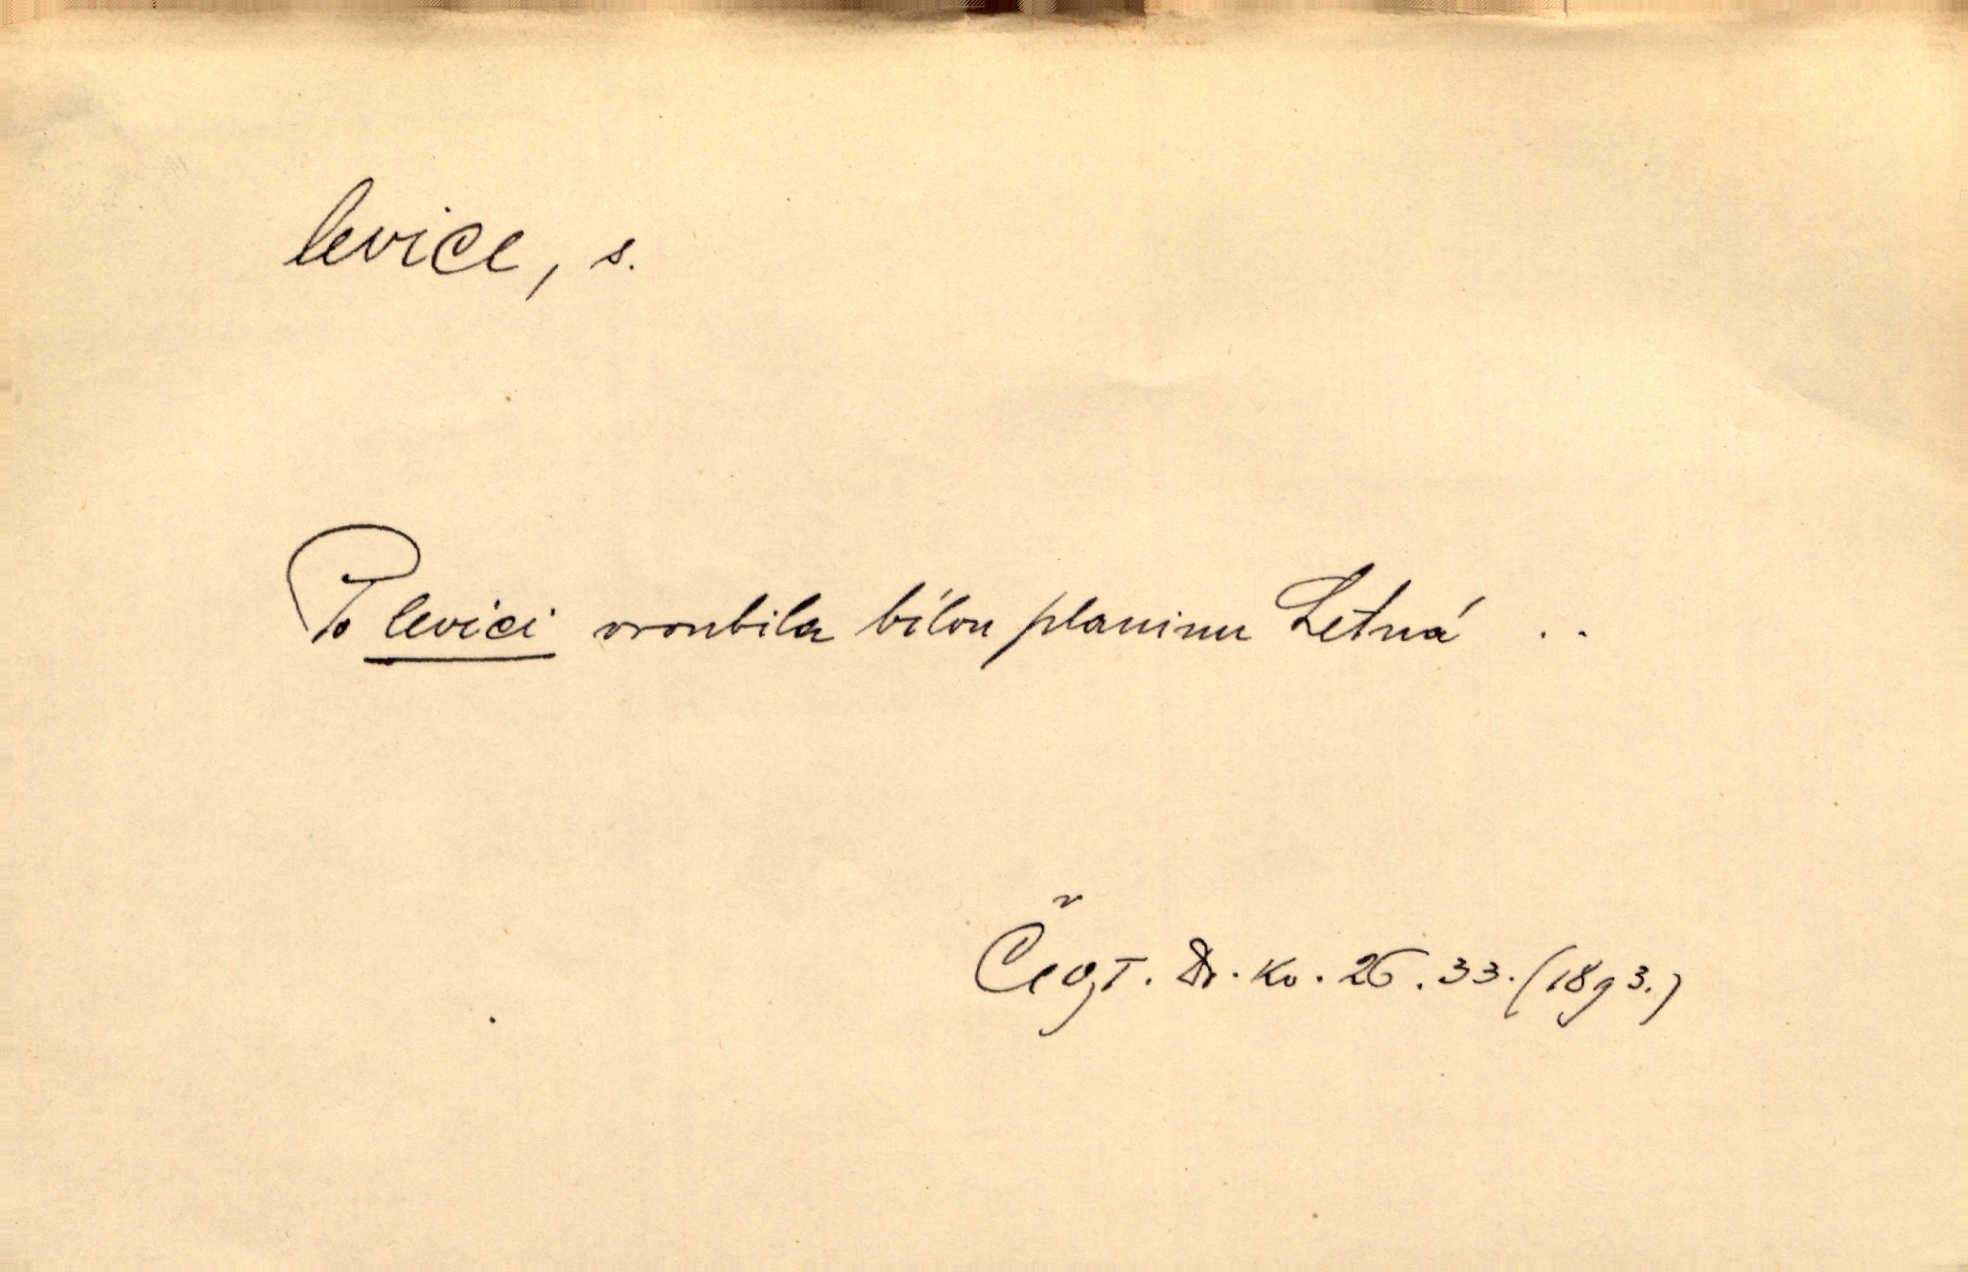 levice, s.
Po levici vroubila bílou planinu Letná ..
Čegt. Dr. Ko. 26. 33. (1893.)